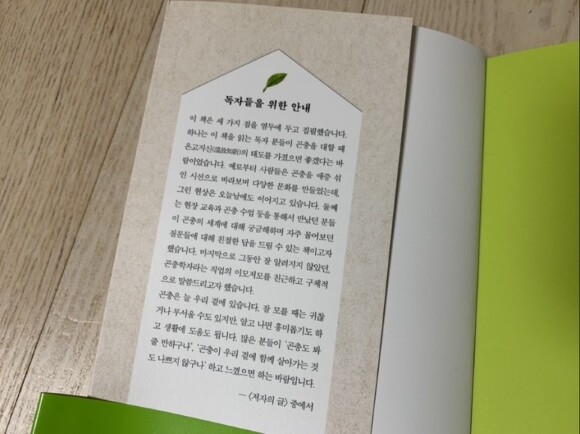 독자들을 위한 안내
이 책은 세 가지 점을 염두에 두고 집필했습니다.
하나는 이 책을 읽는 독자 분들이 곤충을 대할 때
온고지신(溫故知新)의 태도를 가졌으면 좋겠다는 바
람이었습니다. 예로부터 사람들은 곤충을 애증 섞
인 시선으로 바라보며 다양한 문화를 만들었는데,
그런 현상은 오늘날에도 이어지고 있습니다. 둘째
는 현장 교육과 곤충 수업 등을 통해서 만났던 분들
이 곤충의 세계에 대해 궁금해하며 자주 물어보던
질문들에 대해 친절한 답을 드릴 수 있는 책이고자
했습니다. 마지막으로 그동안 잘 알려지지 않았던,
곤충학자라는 직업의 이모저모를 친근하고 구체적
으로 말씀드리고자 했습니다.
곤충은 늘 우리 곁에 있습니다. 잘 모를 때는 귀찮
거나 무서울 수도 있지만, 알고 나면 흥미롭기도 하
고 생활에 도움도 됩니다. 많은 분들이 ‘곤충도 봐
줄 만하구나’, ‘곤충이 우리 곁에 함께 살아가는 것
도 나쁘지 않구나’ 하고 느꼈으면 하는 바람입니다.
— 〈저자의 글〉 중에서